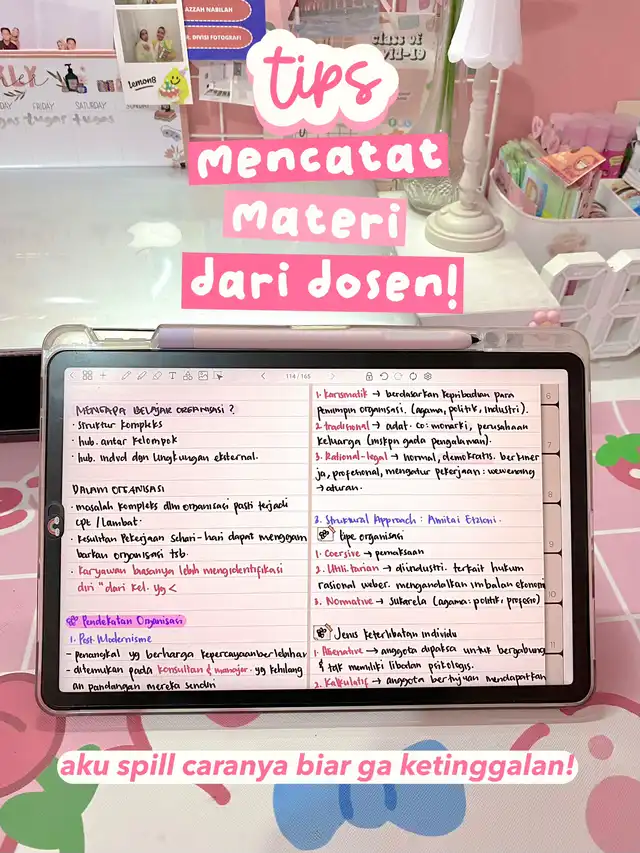 AZZAH NABILAH
DIVISI FOTOGRAFI
lemon8
class of
covid-19
FRIDAY
SATURDAY
tugas tugas
tips
mencatat
materi
dari dosen!
114 / 165
MENGAPA BELAJAR ORGANISASI ?
· Struktur kompleks
· hub. antar kelompok
· hub. indvd dgn lingkungan eksternal.
DALAM ORGANISASI
· masalah kompleks dlm organisasi pasti terjadi
cpt / lambat.
· kesulitan pekerjaan sehari-hari dapat menggam
barkan organisasi tsb.
· karyawan biasanya lebih mengidentifikasi
diri "dari kel. yg <
Pendekatan Organisasi
1. Post Modernisme
- penangkal yg berharga kepercayaan berlebihan
- ditemukan pada konsultan & manajer yg kehilang
an pandangan mereka sendiri
1. Karismatik → berdasarkan kepribadian para
pemimpin organisasi. (agama, politik, industri).
2. tradisional → adat. co: monarki, perusahaan
keluarga (mskpn gada pengalaman).
3. Rational-legal → normal, demokratis. berkiner
ja, profesional, mengatur pekerjaan : wewenang
→ aturan.
3. Struktural Approach : Amitai Etzioni.
tipe organisasi
1. Coersive → pemaksaan
2. Utilitarian → diindustri. terkait hukum
rasional weber. mengandalkan imbalan ekonomi
3. Normative → sukarela (agama, politik, profesio)
Jenis keterlibatan individu
1. Alienative → anggota dipaksa untuk bergabung
& tdk memiliki libatan psikologis.
2. Kalkulatif → anggota bertujuan mendapatkan
6
7
8
9
10
11
aku spill caranya biar ga ketinggalan!